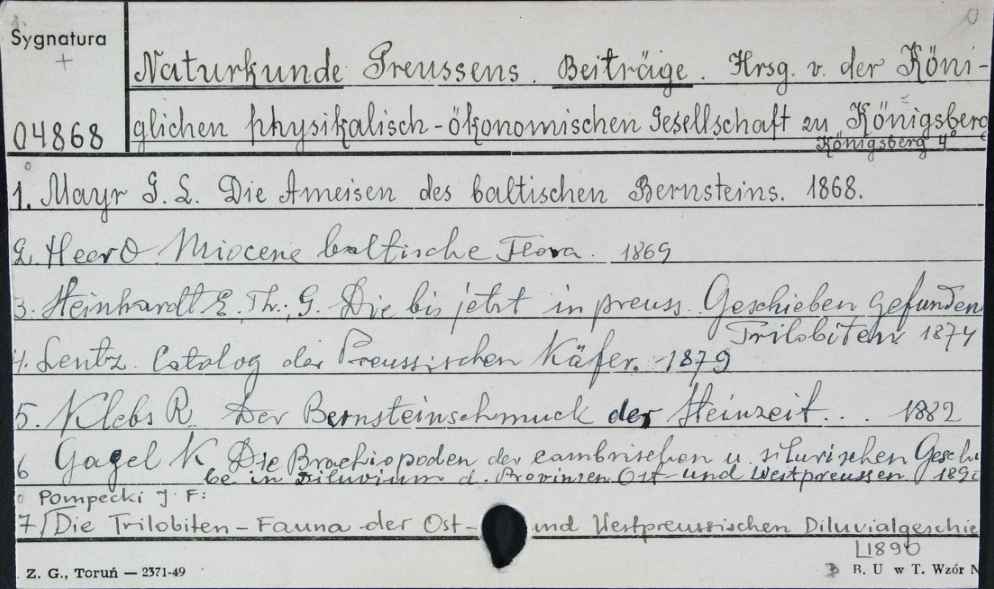 Sygnatura
+
04868
Naturkunde Preussens. Beiträge. Hrsg. v. der Köni-
glichen physikalisch-ökonomischen Gesellschaft zu Königsberg
Königsberg 4°
1. Mayr G. L. Die Ameisen des baltischen Bernsteins. 1868.
2. Heer O Miocene baltische Flora. 1869
3. Steinhardt E. Th. G. Die bis jetzt in preuss. Geschieben gefunden
Trilobiten 1874
4. Lentz. Catalog der Preussischen Käfer. 1879
5. Klebs R. Der Bernsteinschmuck der Steinzeit. . 1882
6 Gagel K Die Brachiopoden der cambrischen u. silurischen Geschi
be in Diluvium d. Provinzen Ost- und Westpreussen 189
Pompecki J. F:
7/ Die Trilobiten-Fauna der Ost- und Westpreussischen Diluvialgeschie
1890
Z. G., Toruń — 2371-49
B. U w T. Wzór N